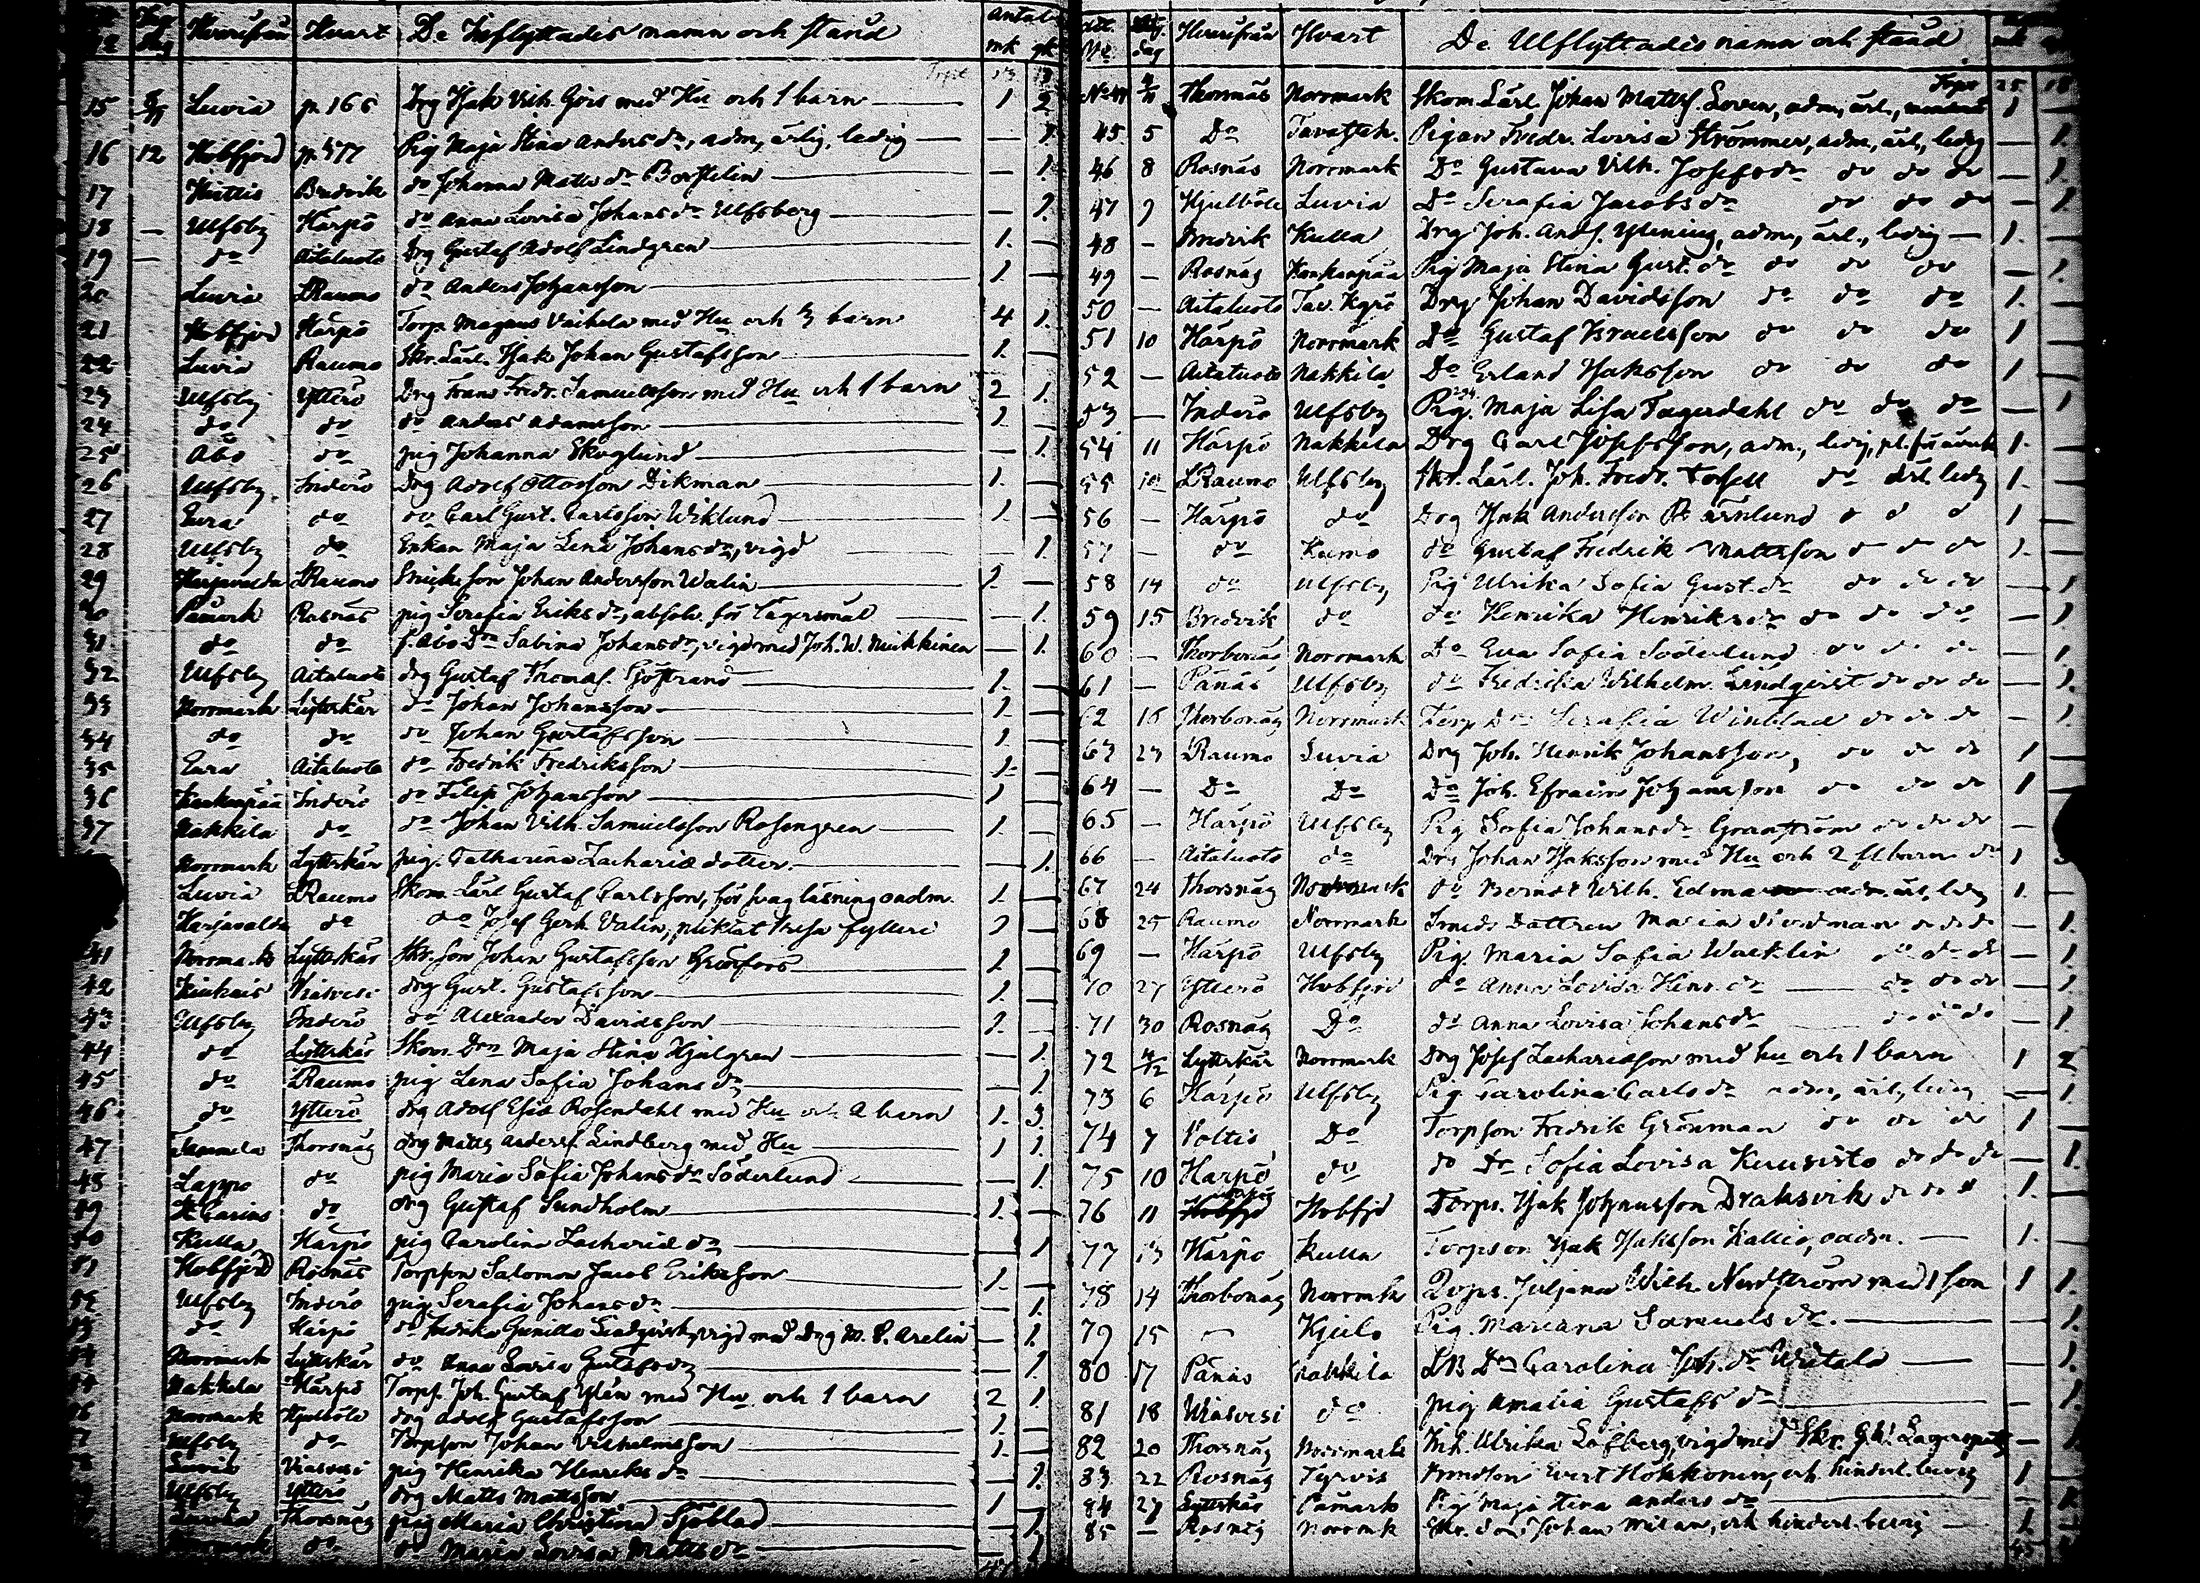 Hvarifrån Hvart De Inflyttades namn och stånd Antal mk qk
15 Luvia p. 166 Drg Isak Vilh. Görs med Hu och 1 barn — 1 2
16 12 Hvbfjerd p. 577 Pig Maja Stina Anders dr, adm, ärlig, ledig — — 1.
17 Bredvik do Johanna Matts dr — — 1.
18 — Ulfsby Härpö do Anna Lovisa Johans dr Ulfsberg — — 1.
19 — do Aitaluoto Drg Gustaf Adolf Lindgren — 1. —
20 Luvia LRaumo do Anders Johansson — 1 —
21 Hvbfjerd Härpö Torp. Magnus med Hu och 3 barn 4 1.
22 Luvia Raumo Skr. Lärl. Isak Johan Gustafsson — 1. —
23 Ulfsby Ytterö Drg Frans Fredr. Samuelsson med Hu och 1 barn 2 1.
24 do do do Anders Adamsson — 1. —
25 Åbo do pig Johanna Skoglund — — 1.
26 Ulfsby Inderö Drg Adolf Ottosson Dikman — 1. —
27 Eura do do Carl Gust. Carlsson Wiklund — 1. —
28 Ulfsby do Enkan Maja Lena Johans dr, vigd — — 1.
29 LRaumo Johan Andersson Walin — 1. —
30 Påmark Rosnäs pig Serafia Eriks dr, absolv. för lägersmål — — 1.
31 do do f. Åbo Dr Sabina Johans dr, vigd med Joh. W. Mikkinen — 1.
32 Ulfsby Aitaluoto drg Gustaf Thomas. Sjöstrand — 1. —
33 Norrmark Lytterkär do Johan Johansson — 1. —
34 do do do Johan Gustafsson — 1 —
35 Eura Aitaluoto do Fredrik Fredriksson — 1. —
36 Kankaanpää Inderö do Filip Johansson — 1 —
37 Nakkila do do Johan Vilh. Samuelsson Rosengren — 1. —
Norrmark Lytterkär pig. Catharina Zachariæ dotter. — — 1.
Luvia LRaumo Skom. Lärl Gustaf Carlsson, för svag läsning oadm. 1. —
do do Josef Gerh. Valin, fylleri 1 —
41 Norrmark Lytterkär Skr. Son Johan Gustafsson Grönfors — 1. —
42 Kiukais Viasvesi drg Gust. Gustafsson — 1. —
43 Ulfsby Inderö do Alexander Davidsson — 1. —
44 do Lytterkär Skom Drn Maja Stina Hjelgren — — 1.
45 do LRaumo pig Lena Sofia Johans dr — — 1.
46 do Ytterö drg Adolf Esias Rosendahl med Hu och 2 barn 1. 3.
47 Thorsnäs drg Matts Anderss. Lindberg med Hu — 1 1.
48 Lappo do pig Maria Sofia Johans dr Söderlund — — 1.
49 St Karins do drg Gustaf Sundholm — 1. —
50 Kulla Härpö pig Carolina Zachariæ dr — — 1
51 Hvbfjerd Rosnäs Torppn Salomon Jacob Eriksson — 1. —
52 Ulfsby Inderö pig Serafia Johans dr — — 1.
53 do Härpö do Fredrika Gunilla Lindqvist, vigd med Drg M. P. Arelin — 1.
54 Norrmark Lytterkär do Anna Lovisa Gustafs dr — — 1.
Nakkila Härpö Torpf. Joh. Gustaf Ylén med Hu och 1 barn 2 1
Norrmark Hjulböle drg Adolf Gustafsson — 1. —
Ulfsby do Torpson Johan Vilhelmsson — 1. —
Luvia Viasvesi pig Henrika Henriks dr — — 1.
Ulfsby Ytterö drg Matts Mattsson — 1 —
Thorsnäs pig Maria Christina Sjöblad — — 1.
Norrmark do do Maria Lovisa Matts dr — — 1
Hvarifrån Hvart De Utflyttades namn och stånd
Thorsnäs Norrmark Skom. Lärl. Johan Mattss. Loven, adm, ärl., 1 —
45 5 Do Tavastjeh. Pigan Fredr. Lovisa Strömmer, adm, ärl., ledig — 1.
46 8 Rosnäs Norrmark Do Gustava Vilh. Josefs dr do do do — 1.
47 9 Hjulböle Luvia Do Serafia Jacobs dr do do do — 1.
48 — Bredvik Kulla Drg Joh. And. Ylining, adm, ärl., ledig — 1. —
49 — Rosnäs Kankaanpää Pig Maja Stina Gust. dr do do do — 1.
50 — Aitaluoto Tav. Kyrö Drg Johan Davidsson do do do 1. —
51 10 Härpö Norrmark Do Gustaf Israelsson do do do 1 —
52 — Aitaluoto Nakkila Do Erland Isaksson do do do 1 —
53 — Inderö Ulfsby Pig. Maja Lisa Fagerdahl do do do — 1
54 11 Härpö Nakkila Drg Carl Josefsson, adm, ledig, 1. —
55 LRaumo Ulfsby Skr. Lärl. Joh. Fredr. Forsell do ärl. ledig 1. —
56 — Härpö do Drg Isak Andersson Pärnlund d d d 1 —
57 — do Kumo do Gustaf Fredrik Mattsson do do do 1. —
58 14 do Ulfsby Pig Ulrika Sofia Gust. dr do do do — 1
59 15 Bredvik do do Henrika Henriks dr do do do — 1.
60 — Thorbonäs Norrmark Do Eva Sofia Söderlund do do do — 1
61 — Pånäs Ulfsby do Fredrika Wilhelm. Lindqvist do do do — 1.
62 16 Thorbonäs Norrmark Torp Dr Serafia Winblad do do do — 1.
63 23 LRaumo Luvia Drg Joh. Henrik Johansson, do do do 1 —
64 — Do Do Do Joh. Efraim Johansson do do do 1 —
65 — Härpö Ulfsby Pig Sofia Johans dr Granström do do do —
66 — Aitaluoto do Drg Johan Isaksson med Hu och 2 flbarn do 1 3
67 24 Thorsnäs Norrmark do Berndt Wilh. Edman adm. ärl, ledig 1. —
68 25 Raumo Norrmark Smeds Dottren Maria Nordman do do do — 1.
69 — Härpö Ulfsby Pig. Maria Sofia Wacklin do do do — 1.
70 27 Ytterö Hvbfjerd do Anna Lovisa Henr. dr — do do do — 1
71 30 Rosnäs Do do Anna Lovisa Johans dr — do do do — 1
72 Lytterkär Norrmark Drg Josef Zachariasson med hu och 1 barn 1 2
73 6 Härpö Ulfsby Pig Carolina Carls dr adm, ärl, ledig — 1
74 7 Voltis Do Torpson Fredrik Grönman do do do 1 —
75 10 Härpö do do Dr Sofia Lovisa Kuusisto do do do — 1.
76 11 Hvbfjd Torpr. Isak Johansson Draksvik do do do 1. —
77 13 Härpö Kulla Torpson Isak Isaksson Kallio, oadm. — 1. —
78 14 Thorbonäs Norrmk Torpr. Juljana Wilh. Nordström med 1 son 1 1.
79 15 — Kjulo Pig. Mariana Samuels dr. — — 1.
80 17 Pånäs Nakkila Dr Carolina Joh. dr Witala — — 1.
81 18 Viasvesi do pig Amalia Gustafs dr — — 1.
82 20 Thorsnäs Norrmark Inh. Ulrika Löfberg, vigd med Skr. — 1.
83 22 Rosnäs Tyrvis Evert Hokkonen, och hinderl. betyg 1 —
84 27 Lytterkär Påmark Pig Maja Stina Anders dr — — 1.
85 — Rosnäs Norrmk Skr. Johan Milan, och hinderl. betyg — 1. —